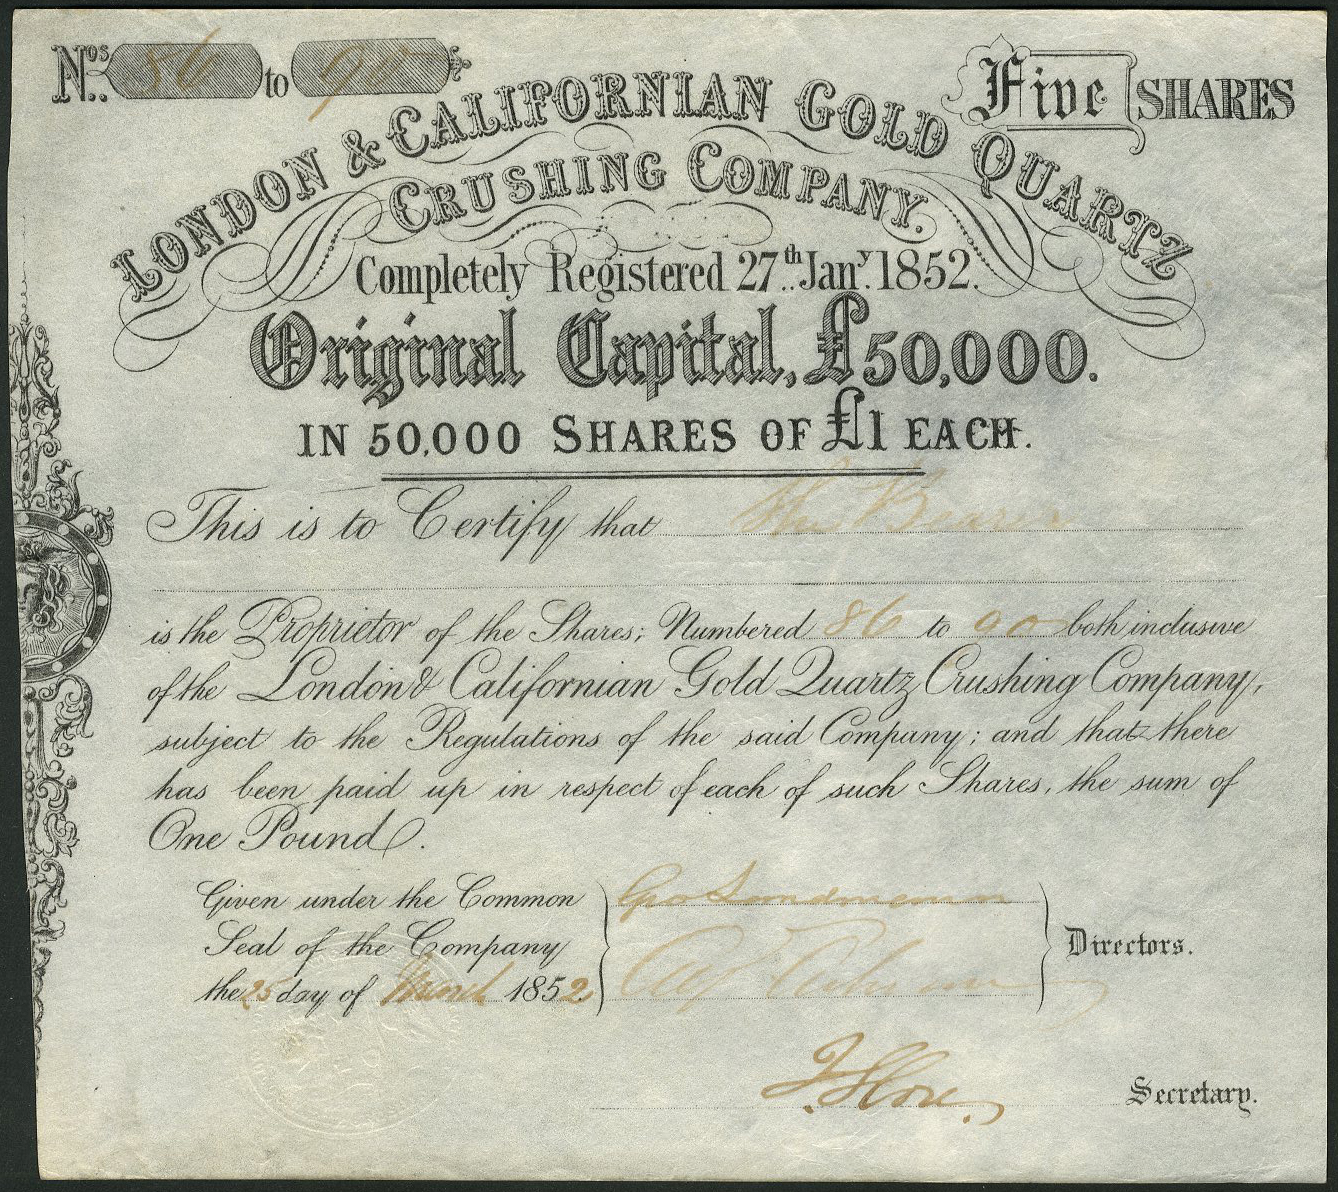 Nos. 86 to 90 Five SHARES
LONDON & CALIFORNIAN GOLD QUARTZ
CRUSHING COMPANY.
Completely Registered 27th Jany. 1852.
Original Capital, £50,000.
IN 50,000 SHARES OF £1 EACH.
This is to Certify that the Bearer
is the Proprietor of the Shares; Numbered 86 to 90 both inclusive
of the London & Californian Gold Quartz Crushing Company,
subject to the Regulations of the said Company; and that there
has been paid up in respect of each of such Shares, the sum of
One Pound.
Given under the Common
Seal of the Company
the 25 day of March 1852.
Geo
Directors.
Secretary.